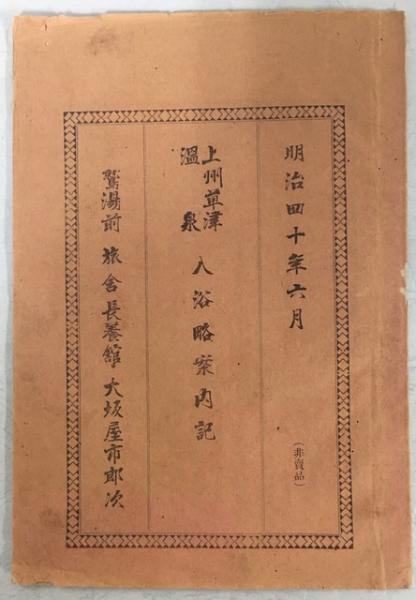 明治四十年六月
(非賣品)
上州草津
溫泉
入浴略案内記
鷲湯前 旅舎長養館 大坂屋市郎次